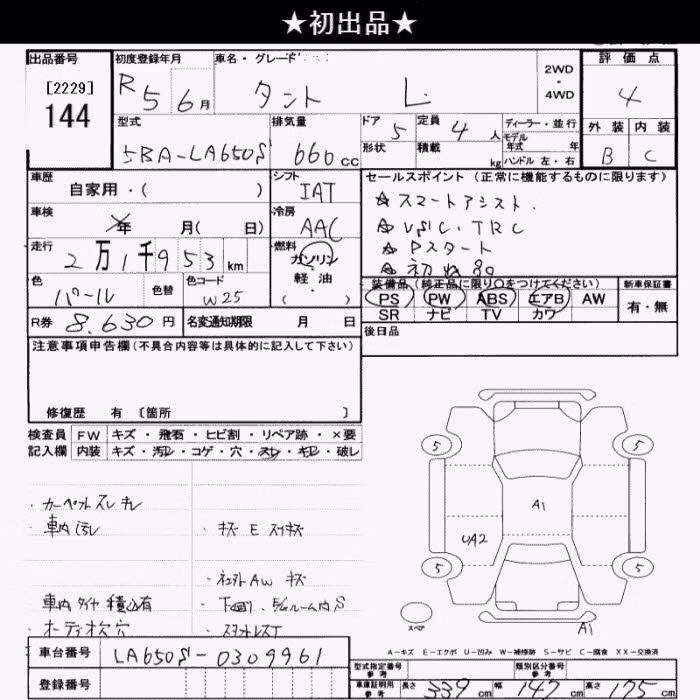 ★初出品★
出品番号
[2229]
144
初度登録年月
R 5 6月
車名・グレード
タント L
2WD
・
4WD
評価点
4
外装 内装
B C
型式
5BA-LA650S
排気量
660cc
ドア 5
形状
定員 4人
積載 kg
ディーラー・並行
モデル
年式 年
ハンドル 左・右
車歴
自家用・( )
シフト
IAT
セールスポイント(正常に機能するものに限ります)
☆スマートアシスト.
☆VSC.TRC
☆Pスタート
☆初出品
車検
年 月( 日)
冷房
AAC
走行
2万1千953km
燃料
ガソリン
軽油
( ・ )
色
パール
色替
色コード
W25
装備品(純正品に限り○をつけてください)
PS PW ABS エアB AW
SR ナビ TV カワ
新車保証書
有・無
R券 8.630円
名変通知期限 月 日
後日品
注意事項申告欄(不具合内容等は具体的に記入して下さい)
修復歴 有〔箇所 〕
検査員 FW キズ・飛石・ヒビ割・リペア跡・×要
記入欄 内装 キズ・汚レ・コゲ・穴・スレ・キレ・破レ
・カーペットスレ キレ
・車内汚レ
・キズ E スリキズ
車内タイヤ積込有
・オーディオ欠穴
・下回り、
5 5
A1
UA2
5 5
スペア
A1
A-キズ E-エクボ U-凹み W-補修跡 S-サビ C-腐食 XX-交換済
車台番号 LA650S-0309961
登録番号
型式指定番号
参考
類別区分番号
参考
車庫証明用
参考
長さ 339cm 幅 147cm 高さ 175cm